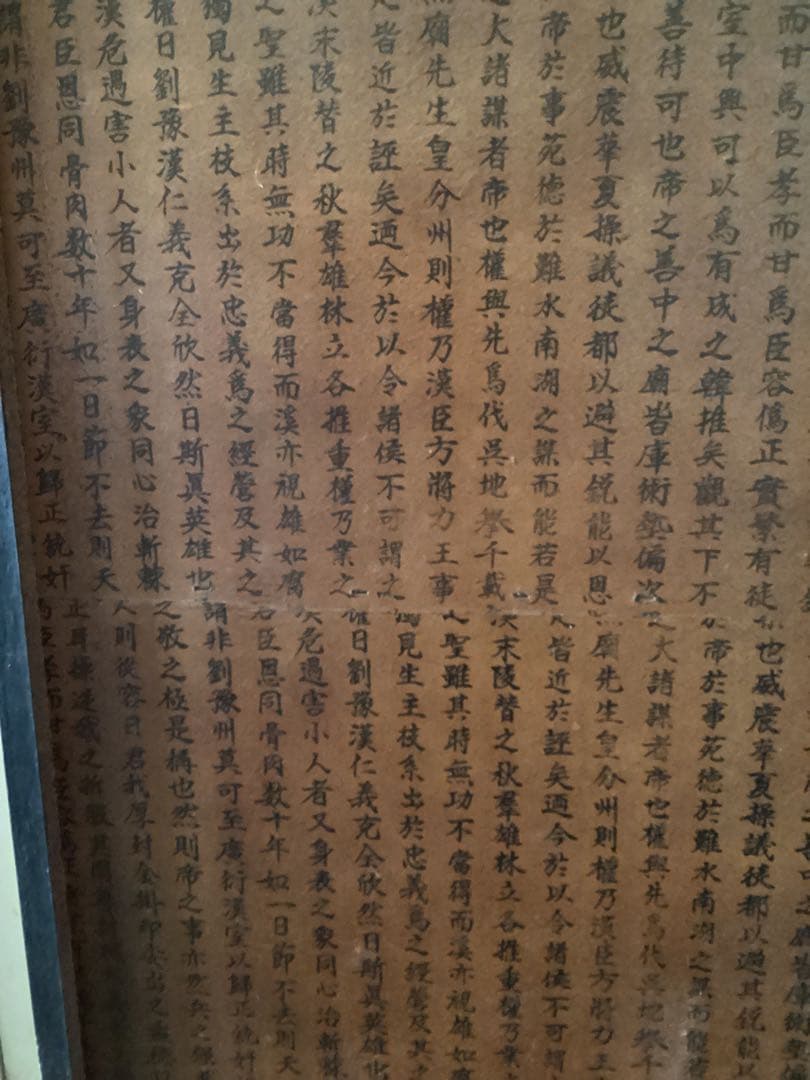 而甘爲臣孝而甘爲臣容僞正實繁有徒
室中興可以爲有成之韓推矣觀其下不
善待可也帝之善中之廟皆庫術塾偏次
也威震華夏操議徒都以避其銳能以恩
帝於事苑德於難水南湖之謀而能若是
大諸謀者帝也權興先爲代吳地千載
廟先生皇分州則權乃漢臣方將力王事
皆近於誣矣迺今於以令諸侯不可謂之
漢末陵替之秋羣雄林立各推重權乃業之
之聖雖其時無功不當得而溪亦視雄如腐
獨見生主枝系出於忠義爲之經營及其之
權日劉豫漢仁義克全欣然日斯眞英雄也
漢危遇害小人者又身表之衆同心治斬棘
君臣恩同骨肉数十年如一日節不去則天
謂非劉豫州莫可至廣衍漢室以歸正統奸
也威震華夏操議徒都以避其銳能以
帝於事苑德於難水南湖之謀而能
大諸謀者帝也權興先爲代吳地千
廟先生皇分州則權乃漢臣方將力王
皆近於誣矣迺今於以令諸侯不可謂
漢末陵替之秋羣雄林立各推重權乃業
之聖雖其時無功不當得而溪亦視雄如腐
獨見生主枝系出於忠義爲之經營及其之
權日劉豫漢仁義克全欣然日斯眞英雄也
漢危遇害小人者又身表之衆同心治斬棘
君臣恩同骨肉数十年如一日節不去則天
謂非劉豫州莫可至廣衍漢室以歸正統奸
之敬之極是稱也然則帝之事亦
人則從容日君我厚封金掛印